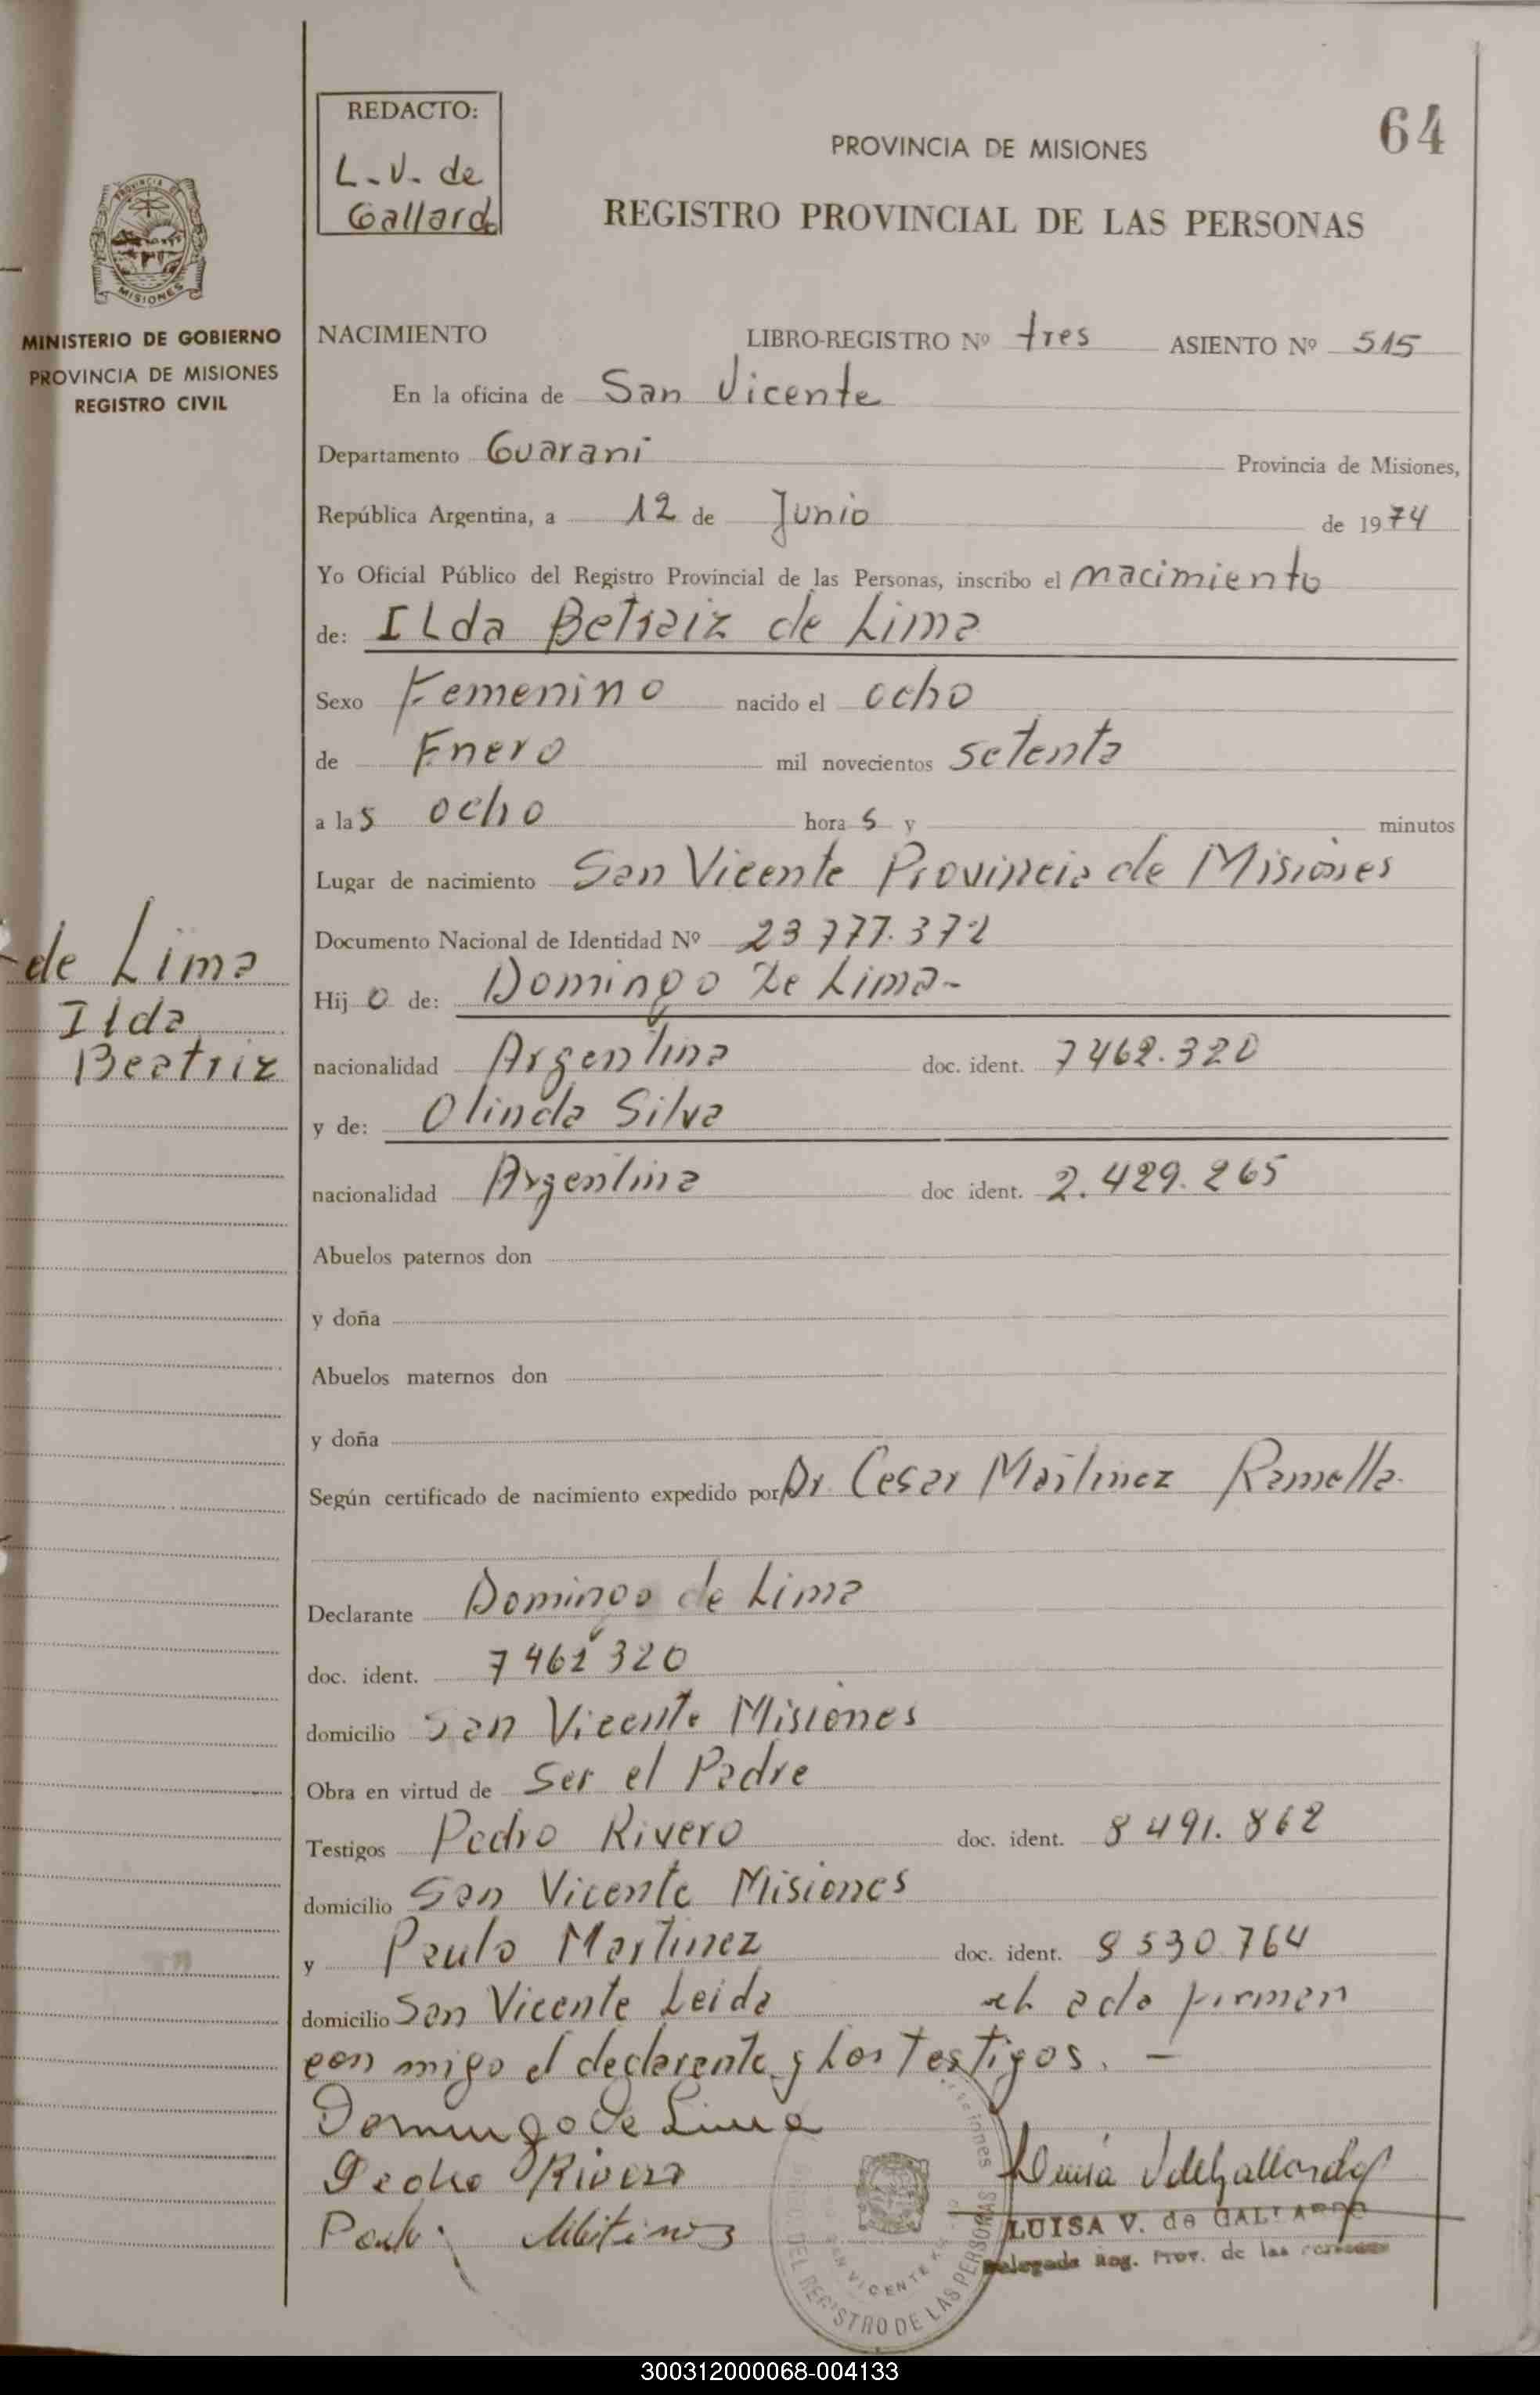 REDACTO:
L.V. de
Gallardo
64
PROVINCIA DE MISIONES
REGISTRO PROVINCIAL DE LAS PERSONAS
PROVINCIA DE
MISIONES
MINISTERIO DE GOBIERNO
PROVINCIA DE MISIONES
REGISTRO CIVIL
NACIMIENTO LIBRO-REGISTRO Nº tres ASIENTO Nº 515
En la oficina de San Vicente
Departamento Guaraní Provincia de Misiones,
República Argentina, a 12 de Junio de 1974
Yo Oficial Público del Registro Provincial de las Personas, inscribo el nacimiento
de: ILda Betraiz de Lima
Sexo Femenino nacido el ocho
de Enero mil novecientos setenta
a las ocho horas y minutos
Lugar de nacimiento San Vicente Provincia de Misiones
Documento Nacional de Identidad Nº 23 777.372
de Lima
Ilda
Beatriz
Hijo de: Domingo De Lima-
nacionalidad Argentina doc. ident. 7462.320
y de: Olinda Silva
nacionalidad Argentina doc ident. 2.429.265
Abuelos paternos don
y doña
Abuelos maternos don
y doña
Según certificado de nacimiento expedido por Dr Cesar Martinez Ramella.
Declarante Domingo de Lima
doc. ident. 7462 320
domicilio San Vicente Misiones
Obra en virtud de Ser el Padre
Testigos Pedro Rivero doc. ident. 8 491.862
domicilio San Vicente Misiones
y Paulo Martinez doc. ident. 8 530 764
domicilio San Vicente Leida el acta firman
con migo el declarante y Los Testigos. -
Domingo De Lima
Pedro Rivero
LUISA V. de GALLARDO
Delegada Reg. Prov. de las Personas
DEL REGISTRO DE LAS PERSONAS
SAN VICENTE
300312000068-004133